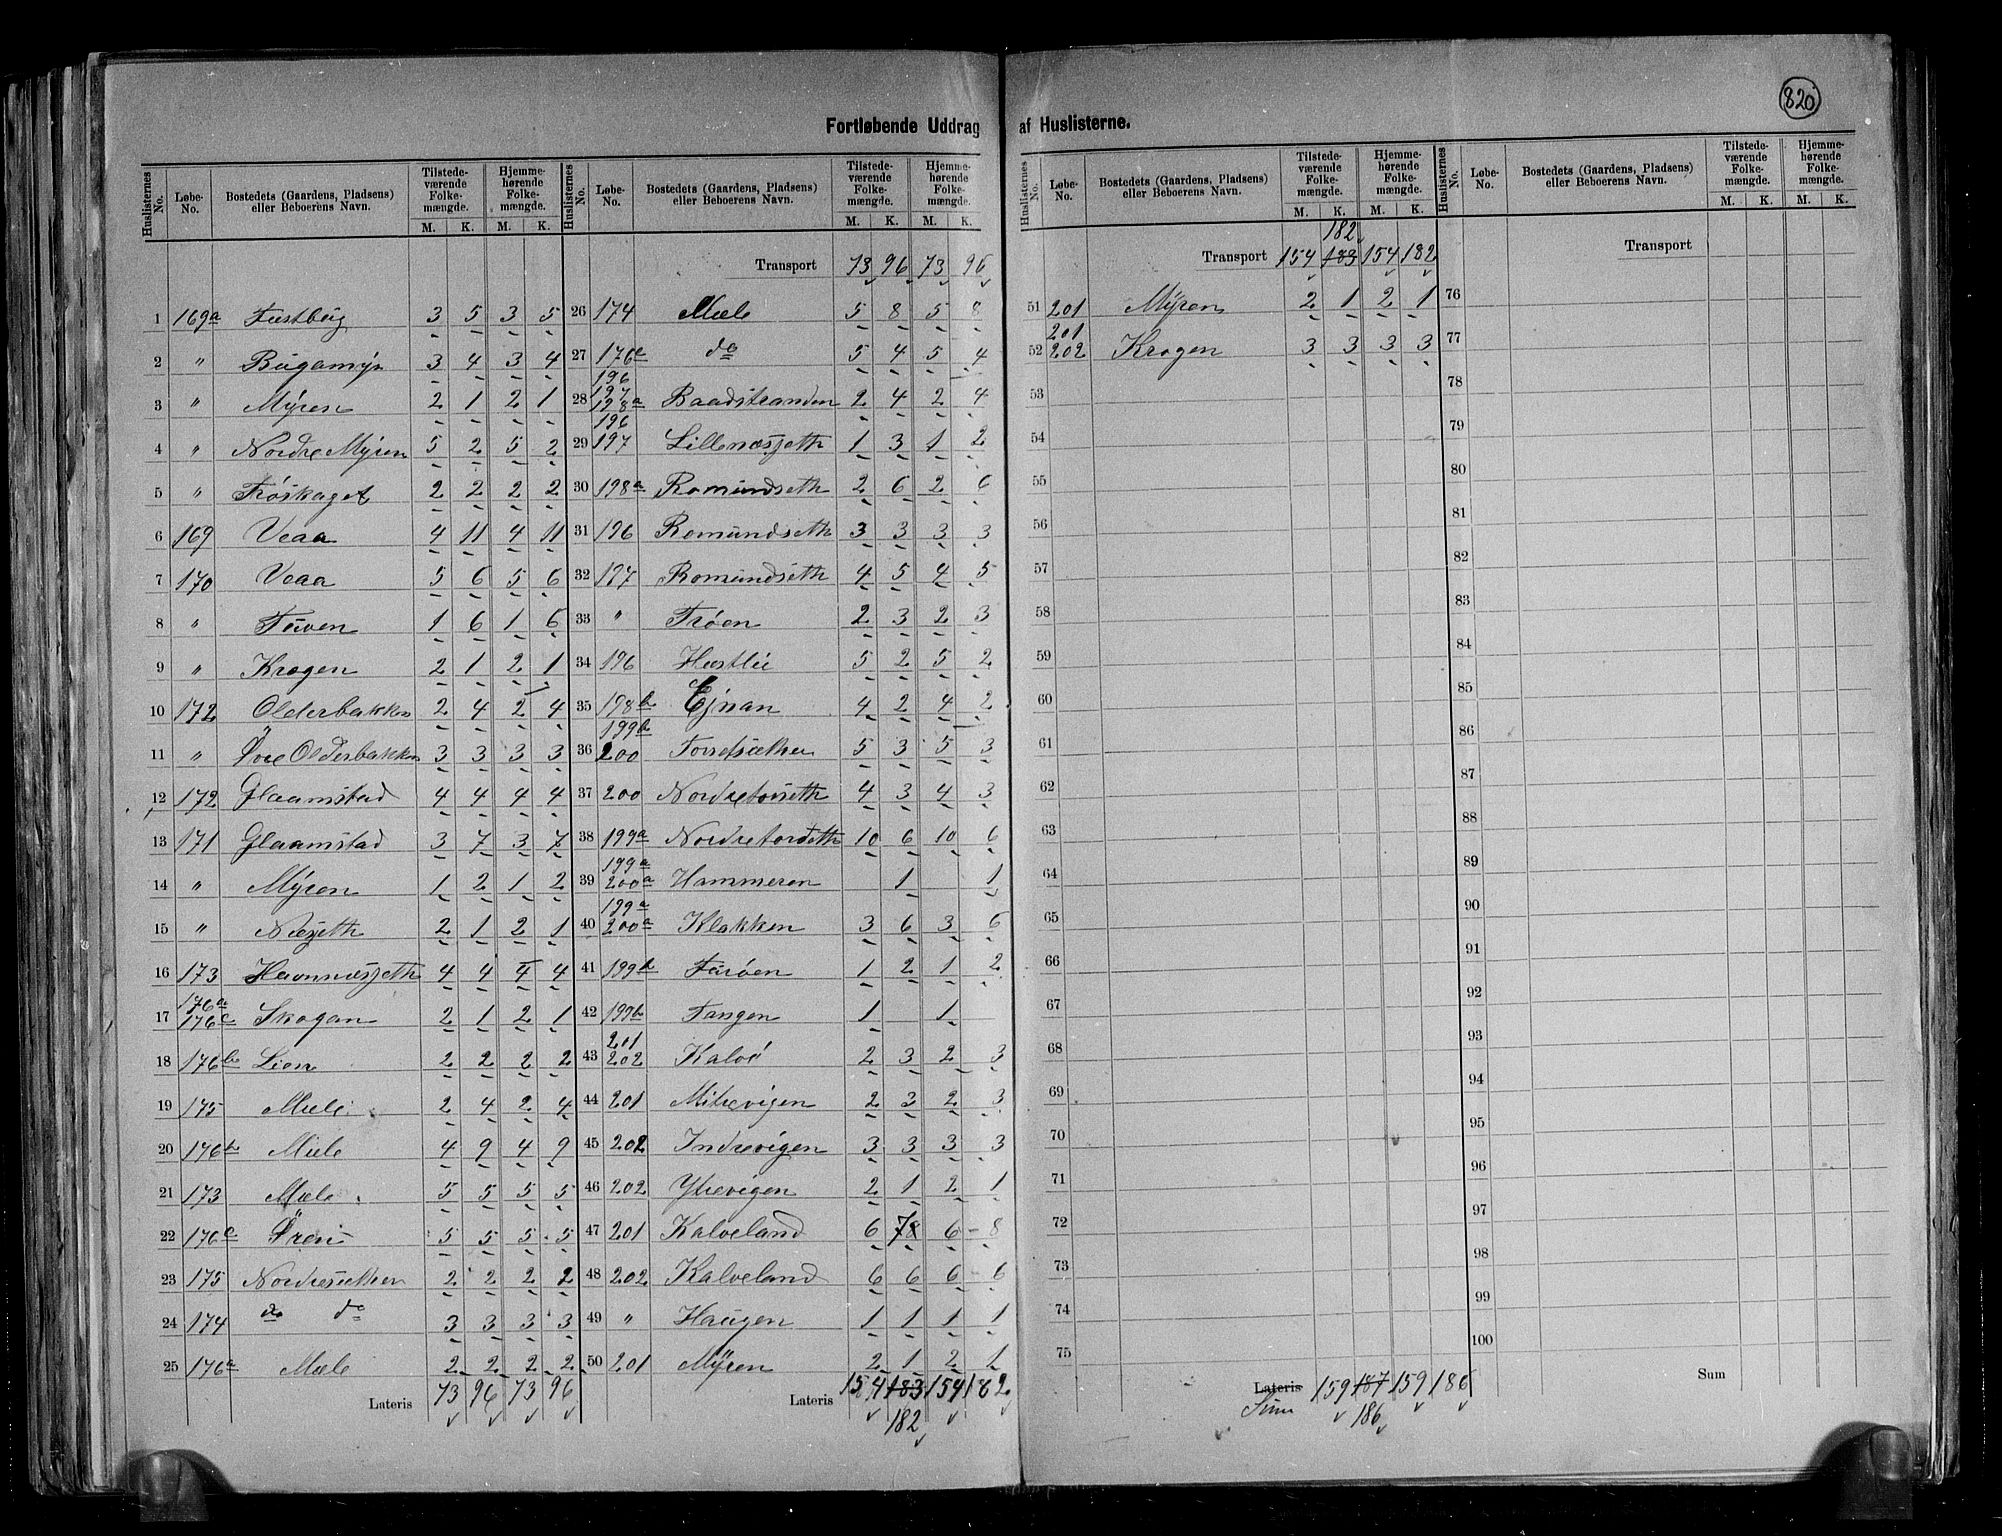 820
Fortløbende Uddrag af Huslisterne.
Huslisternes No. Løbe-No. Bostedets (Gaardens, Pladsens) eller Beboerens Navn. Tilstedeværende Folkemængde. M. K. Hjemmehørende Folkemængde. M. K.
1 169a 3 5 3 5
2 " Bugamyr 3 4 3 4
3 " Myren 2 1 2 1
4 " Nordre Myren 5 2 5 2
5 " Trøskaget 2 2 2 2
6 169 Veaa 4 11 4 11
7 170 Veaa 5 6 5 6
8 " 1 6 1 6
9 " Krogen 2 1 2 1
10 172 Olderbakken 2 4 2 4
11 " Øvre Olderbakken 3 3 3 3
12 172 Glaamstad 4 4 4 4
13 171 Glaamstad 3 7 3 7
14 " Myren 1 2 1 2
15 " Næsjeth 2 1 2 1
16 173 Havnnæssjeth 4 4 4 4
17 176a 176c Skogan 2 1 2 1
18 176b Lien 2 2 2 2
19 175 Mæle 2 4 2 4
20 176b Mæle 4 9 4 9
21 173 Mæle 5 5 5 5
22 176c Øren 5 5 5 5
23 175 Nordresætren 2 2 2 2
24 174 do do 3 3 3 3
25 176a Mæle 2 2 2 2
Lateris 73 96 73 96
Huslisternes No. Løbe-No. Bostedets (Gaardens, Pladsens) eller Beboerens Navn. Tilstedeværende Folkemængde. M. K. Hjemmehørende Folkemængde. M. K.
Transport 73 96 73 96
26 174 Mæle 5 8 5 8
27 176c do 5 4 5 4
28 196 197 198a Baadstranden 2 4 2 4
29 196 197 Lillenæssjeth 1 3 1 2
30 198a Romundseth 2 6 2 6
31 196 Romundseth 3 3 3 3
32 197 Romundseth 4 5 4 5
33 " Trøen 2 3 2 3
34 196 Hestlie 5 2 5 2
35 198b Ejnan 4 2 4 2
36 199b 200 5 3 5 3
37 200 Nordretorseth 4 3 4 3
38 199a Nordretorseth 10 6 10 6
39 199a 200a Hammeren 1 1
40 199a 200a Klakken 3 6 3 6
41 199b Furøen 1 2 1 2
42 199b Tangen 1 1
43 201 202 Kalvø 2 3 2 3
44 201 Mitrevigen 2 3 2 3
45 202 Indrevigen 3 3 3 3
46 202 Ytrevigen 2 1 2 1
47 201 Kalveland 6 78 6 8
48 202 Kalveland 6 6 6 6
49 " Haugen 1 1 1 1
50 201 Myren 2 1 2 1
Lateris 154 183 154 182
182
Huslisternes No. Løbe-No. Bostedets (Gaardens, Pladsens) eller Beboerens Navn. Tilstedeværende Folkemængde. M. K. Hjemmehørende Folkemængde. M. K.
182
Transport 154 183 154 182
51 201 Myren 2 1 2 1
52 201 202 Krogen 3 3 3 3
53
54
55
56
57
58
59
60
61
62
63
64
65
66
67
68
69
70
71
72
73
74
75
Lateris 159 187 159 186
Sum 186
Huslisternes No. Løbe-No. Bostedets (Gaardens, Pladsens) eller Beboerens Navn. Tilstedeværende Folkemængde. M. K. Hjemmehørende Folkemængde. M. K.
Transport
76
77
78
79
80
81
82
83
84
85
86
87
88
89
90
91
92
93
94
95
96
97
98
99
100
Sum